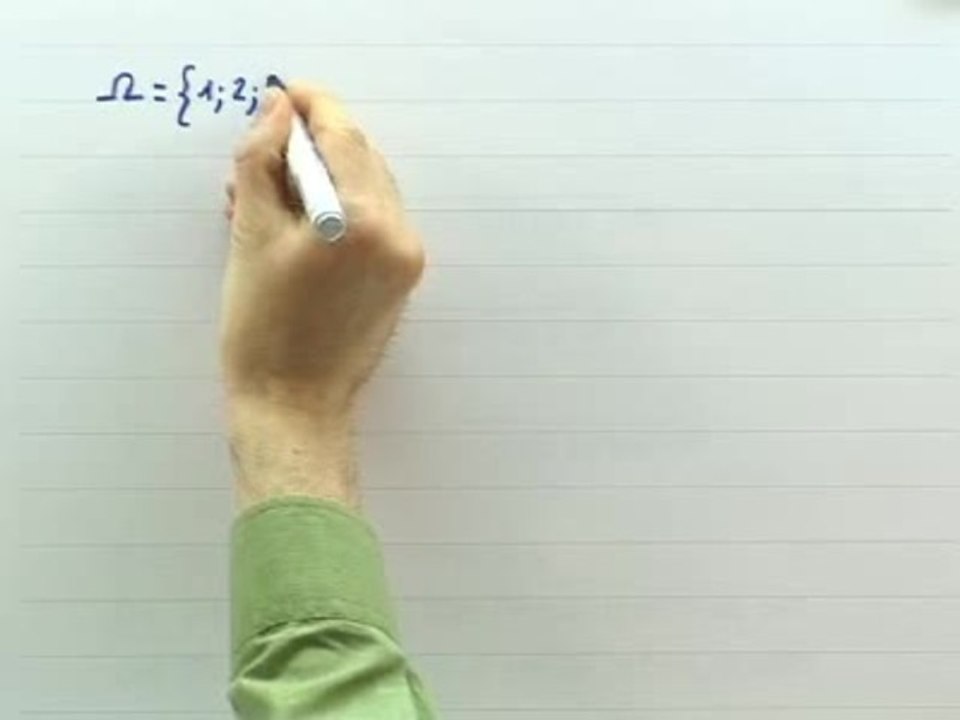 Ω = {1; 2;